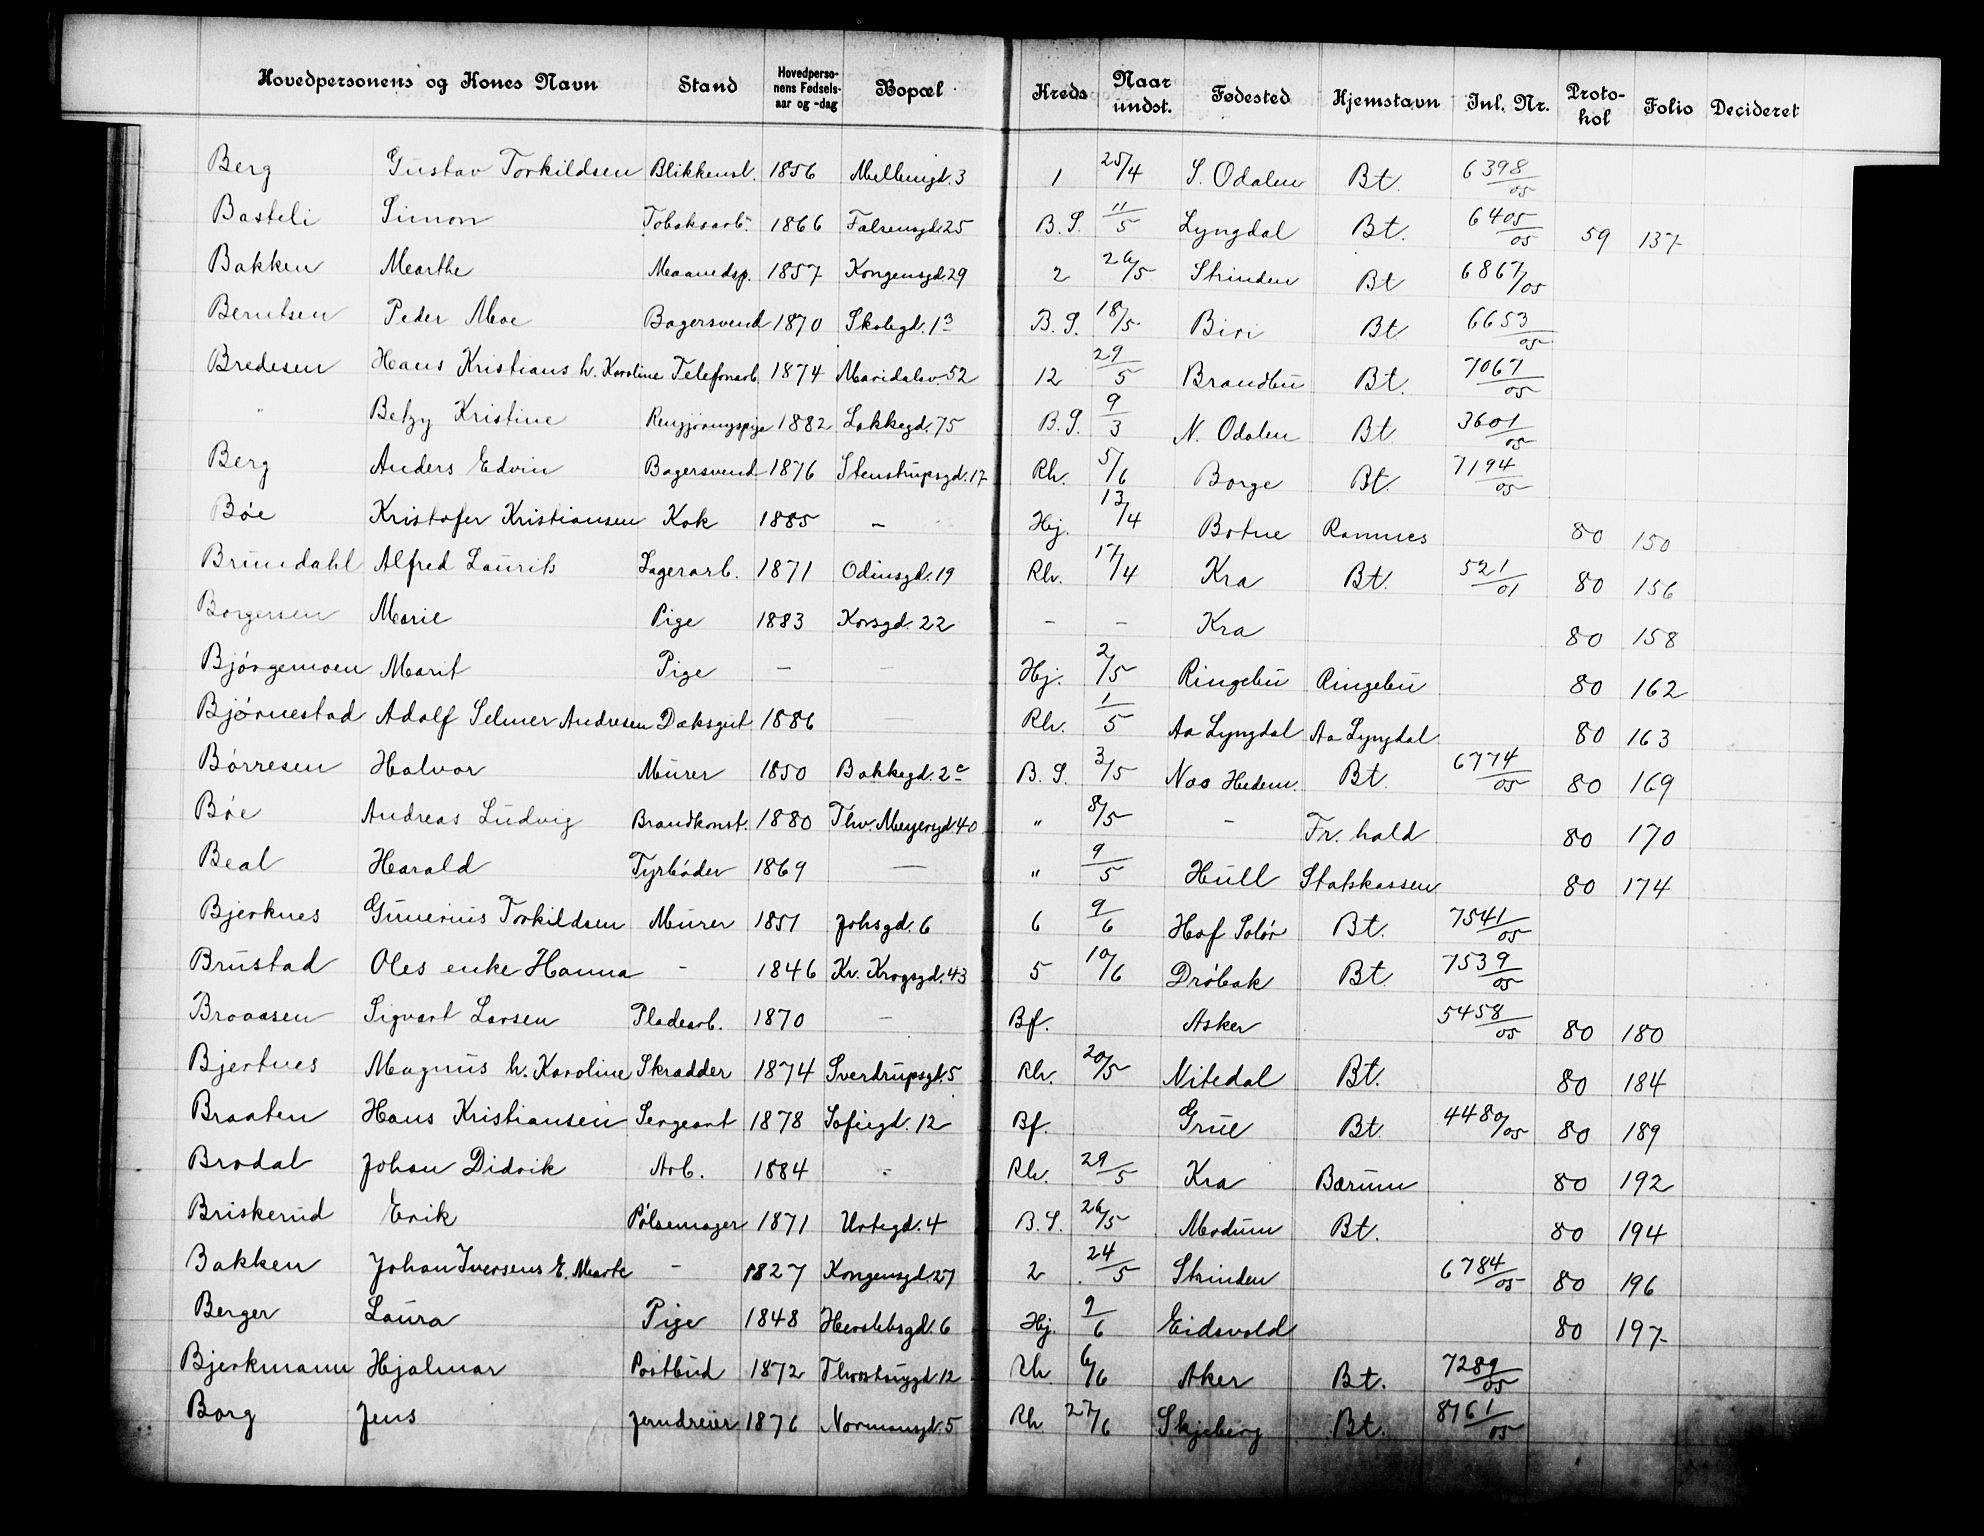 Hovedpersonens og Kones Navn Stand Hovedpersonens Fødselsaar og -dag Bopæl Kreds Naar undst. Fødested Hjemstavn Inl. Nr. Protokol Folio Decideret
Berg Gustav Torkildsen Blikkensl. 1856 1 25/4 S. Odalen Bt. 6398/05
Basteli Simon Tobaksarb. 1866 Falsensgd. 25 B. S. 11/5 Lyngdal Bt. 6405/05 59 137
Bakken Marthe Maanedsp. 1857 Kongensgd. 29 2 26/5 Strinden Bt 6867/05
Berntsen Peder Moe Bagersvend 1870 Skolegd. 13 B. S. 18/5 Biri Bt 6653/05
Bredesen Hans Kristians h. Karoline Telefonarb. 1874 Maridalsv 52 12 29/5 Brandbu Bt. 7067/05
" Betzy Kristine Rengjøringspige 1882 Lakkegd. 75 B. S. 9/3 N. Odalen Bt 3601/05
Berg Anders Edvin Bagersvend 1876 Stenstrupsgd. 17 Rh. 5/6 Borge Bt. 7194/05
Bøe Kristofer Kristiansen Kok 1885 - Hj. 13/4 Botne Ramnes 80 150
Brundahl Alfred Laurits Lagerarb. 1871 Odinsgd. 19 Rh. 17/4 Kra Bt. 521/01 80 156
Borgersen Marie Pige 1883 Korsgd. 22 - - Kra 80 158
Bjørgemoen Marit Pige - - Hj. 2/5 Ringebu Ringebu 80 162
Bjørnestad Adolf Selmer Andresen Dæksgut 1886 - Rh. 1/5 Aa Lyngdal Aa Lyngdal 80 163
Børresen Halvor Murer 1850 Bakkegd. 2c B. S. 3/5 Nas Hedem. Bt. 6774/05 80 169
Bøe Andreas Ludvig Brandkonst. 1880 Thv. Meyersgd. 40 " 8/5 - Fr. hald 80 170
Beal Harald Fyrbøder 1869 - " 9/5 Hull Statskassen 80 174
Bjerknes Gunerius Torkildsen Murer 1851 Johsgd. 6 6 9/6 Hof Solør Bt. 7541/05
Brustad Oles enke Hanna - 1846 Kr. Krogsgd. 43 5 10/6 Drøbak Bt. 7539/05
Braaasen Sigvart Larsen Pladearb. 1870 - Bf. Asker 5458/05 80 180
Bjertnes Magnus h. Karoline Skradder 1874 Sverdrupsgt. 5 Rh. 20/5 Nitedal Bt. 80 184
Braaten Hans Kristiansen Sergeant 1878 Sofiegd. 12 Bf. Grue Bt. 4480/05 80 189
Brodal Johan Didrik Arb. 1884 - Rh. 29/5 Kra Bærum 80 192
Briskerud Erik Pølsemager 1871 Urtegd. 4 B. S. 26/5 Modum Bt. 80 194
Bakken Johan Iversens E. Marte - 1827 Kongensgd. 27 2 24/5 Strinden 6784/05 80 196
Berger Laura Pige 1848 Herslebsgd. 6 Hj. 9/6 Eidsvold 80 197
Bjerkmann Hjalmar Postbud 1872 12 Rh 6/6 Aker Bt. 7289/05
Borg Jens Jerndreier 1876 Normansgd. 5 Rh 27/6 Skjeberg Bt. 8761/05